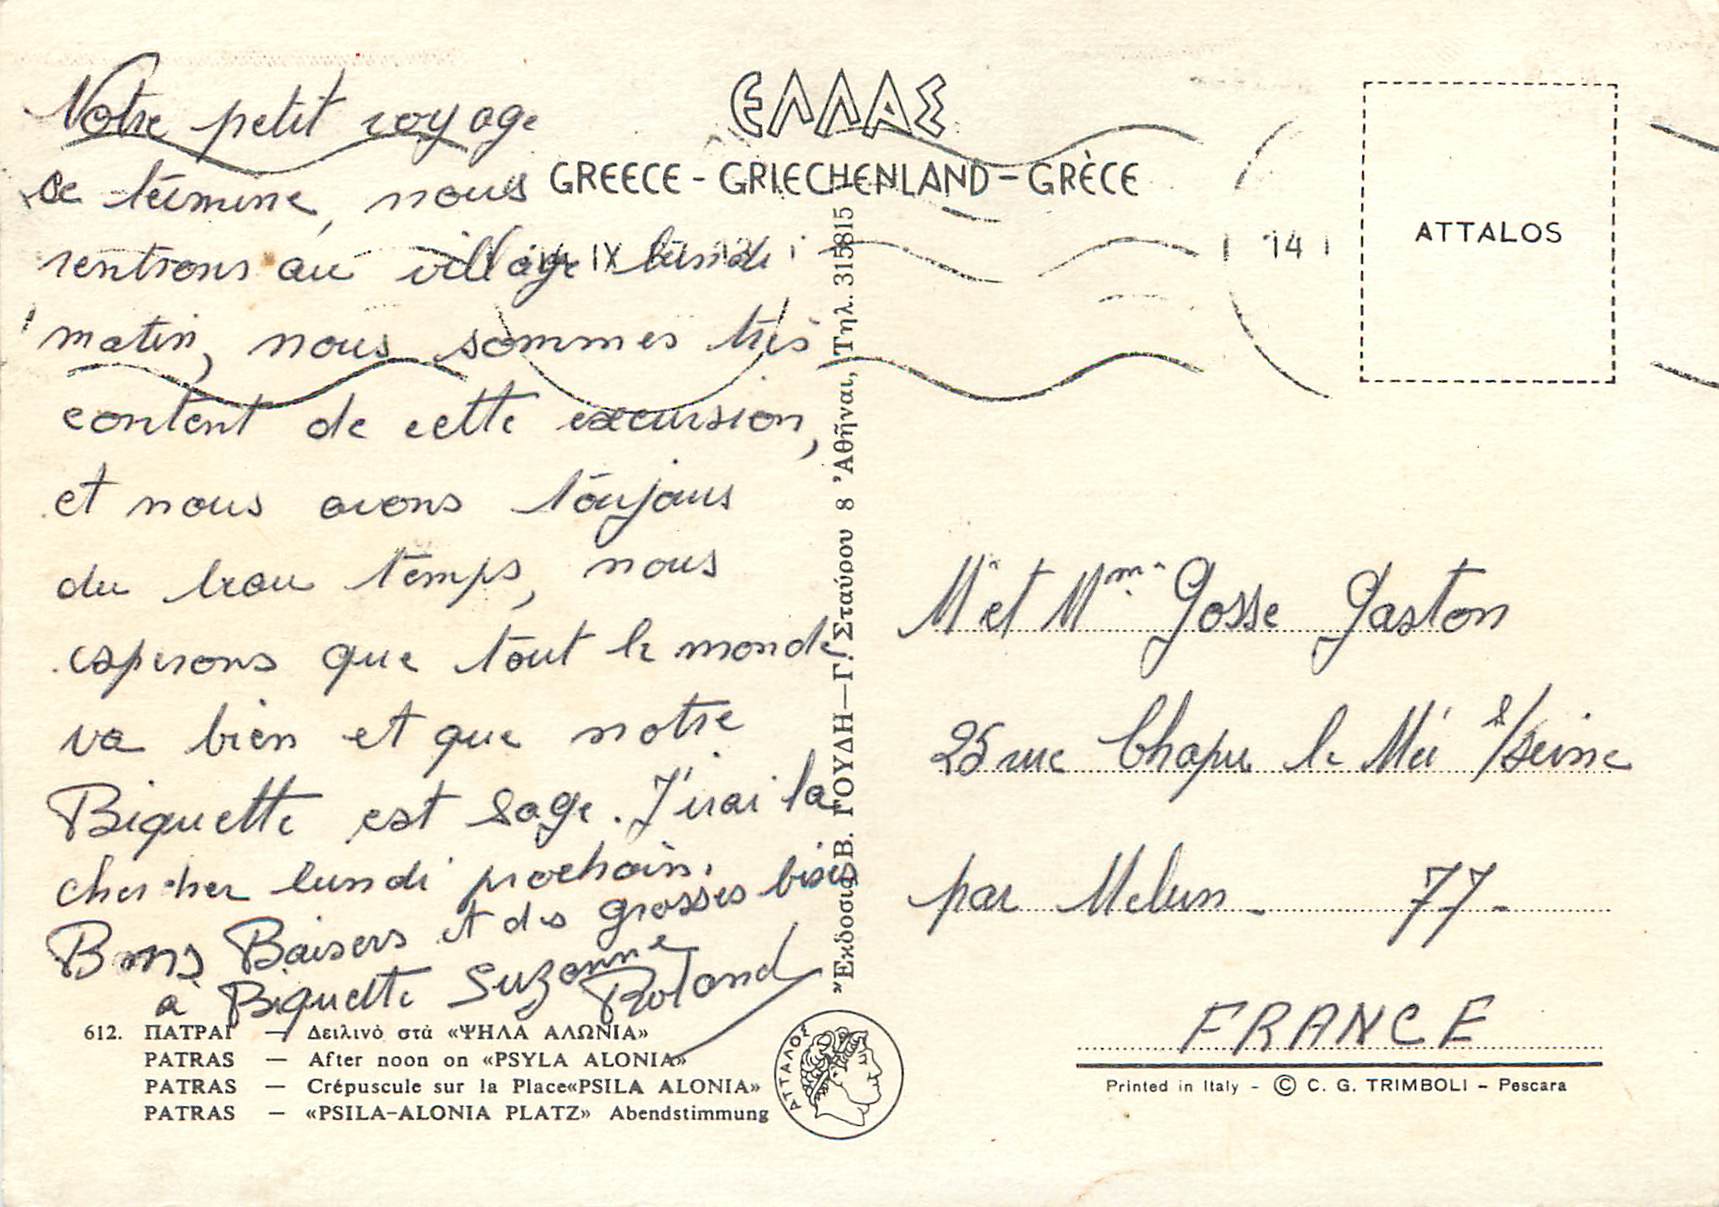 Notre petit voyage
se termine, nous
rentrons au village lundi
matin, nous sommes très
content de cette excursion,
et nous avons toujours
du beau temps, nous
esperons que tout le monde
va bien et que notre
Biquette est sage. J'irai la
chercher lundi prochain.
Bons Baisers et des grosses bises
à Biquette Suzanne
Roland
612. ΠΑΤΡΑΙ — Δειλινὸ στὰ «ΨΗΛΑ ΑΛΩΝΙΑ»
PATRAS — After noon on «PSYLA ALONIA»
PATRAS — Crépuscule sur la Place«PSILA ALONIA»
PATRAS — «PSILA-ALONIA PLATZ» Abendstimmung
ΑΤΤΑΛΟΣ
ΕΛΛΑΣ
GREECE - GRIECHENLAND - GRÈCE
IX
14
ATTALOS
Ἔκδοσις Β. ΓΟΥΔΗ—Γ. Σταύρου 8 Ἀθῆναι, Τηλ. 315815
Mr et Mme Gosse Gaston
25 rue Chapu le Mée s/seine
par Melun - 77 -
FRANCE
Printed in Italy - © C. G. TRIMBOLI - Pescara